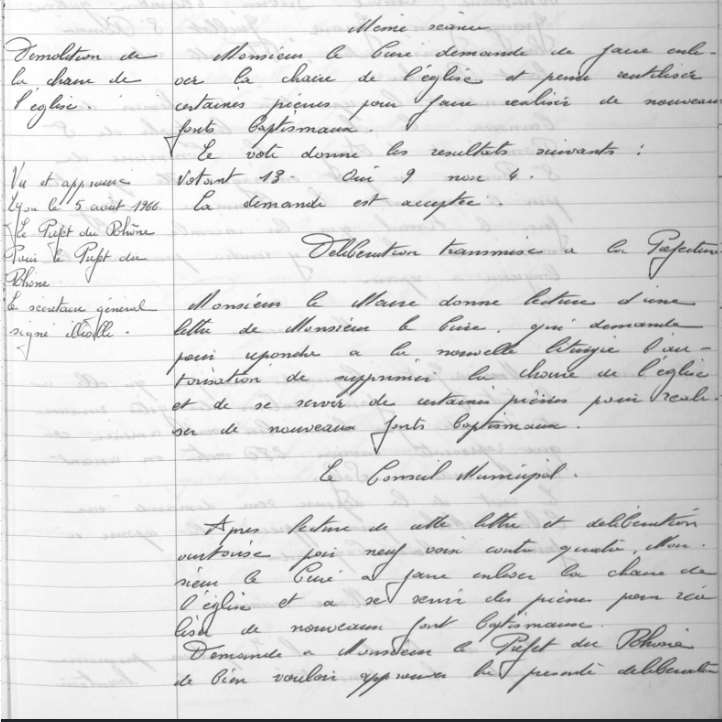 Même séance
Démolition de
la chaire de
l'église.
Monsieur le Curé demande de faire enle-
ver la chaire de l'église et pense réutiliser
certaines pierres pour faire realiser de nouveaux
fonts baptismaux.
Le vote donne les resultats suivants :
Votant 13 - Oui 9 non 4.
La demande est acceptée.
Vu et approuvé
Lyon le 5 août 1966
Le Préfet du Rhône
Pour le Préfet du
Rhône
Le secrétaire général
signé illisible.
Déliberation transmise a la Préfecture
Monsieur le Maire donne lecture d'une
lettre de Monsieur le Curé, qui demande
pour repondre a la nouvelle liturgie l'au-
torisation de supprimer la chaire de l'église
et de se servir de certaines pierres pour reali-
ser de nouveaux fonts baptismaux.
Le Conseil Municipal.
Apres lecture de cette lettre et délibération
autorise par neuf voix contre quatre, Mon-
sieur le Curé a faire enlever la chaire de
l'église et a se servir des pierres pour réa
liser de nouveaux font baptismaux.
Demande a Monsieur le Préfet du Rhône
de bien vouloir approuver la presente déliberation